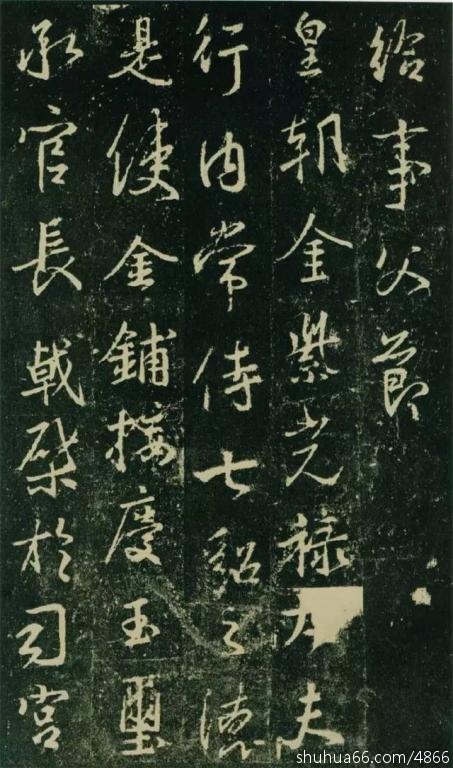 給事父節
皇朝金紫光祿大夫
行内常侍七貂之德
是使金鋪接慶玉璽
承官長戟棨於司宮
shuhua66.com/4866